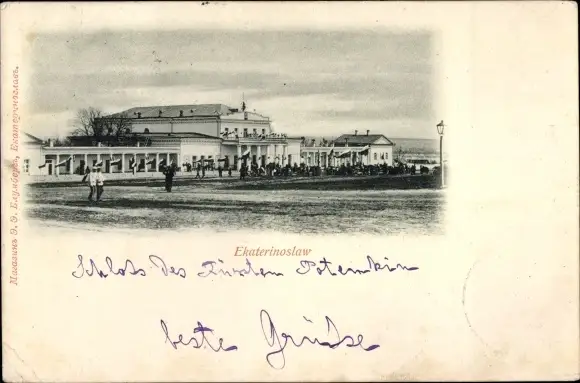 Магазинъ Э. Э. Блумберга, Екатеринославъ.
Ekaterinoslaw
Schloss des Fürsten Potemkin
beste Grüsse